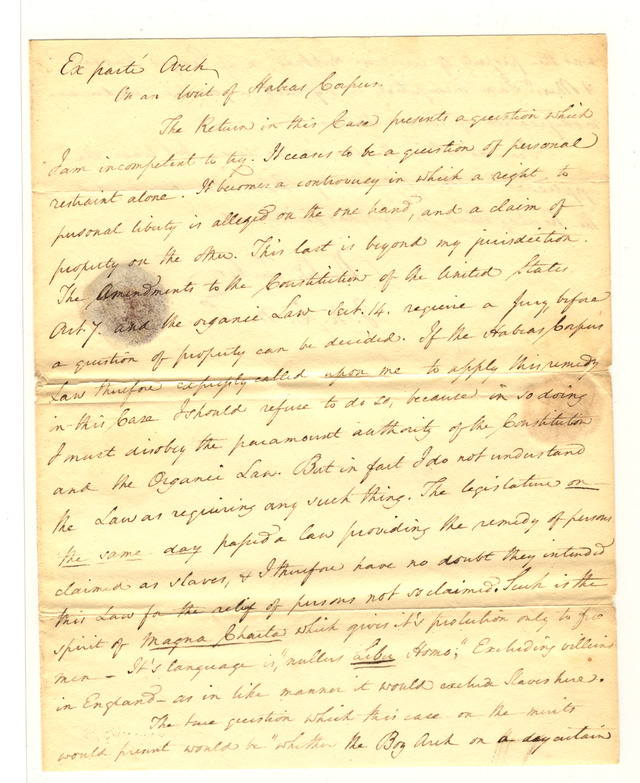 Ex parté Arch
On an Writ of Habias Corpus.
The Return in this Case presents a question which
I am incompetent to try. It ceases to be a question of personal
restraint alone. It becomes a controversy in which a right to
personal liberty is alleged on the one hand, and a claim of
property on the other. This last is beyond my jurisdiction.
The Amendments to the Constitution of the United States
Art. 7. and the organic Law Sect. 14. require a jury, before
a question of property can be decided. If the Habias Corpus
Law therefore expressly called upon me to apply this remedy
in this Case I should refuse to do so, because in so doing
I must disobey the paramount authority of the Constitution
and the Organic Law. But in fact I do not understand
the Law as requiring any such thing. The legislature on
the same day passed a law providing the remedy of persons
claimed as slaves, & I therefore have no doubt they intended
this Law for the relief of persons not so claimed. Such is the
spirit of Magna Charta which gives it's protection only to free
men – It's language is, "nullus Liber Homo," Excluding villeins
in England – as in like manner it would exclude Slaves here.
The true question which this case on the merits
would present would be "whether the Boy Arch on a day certain